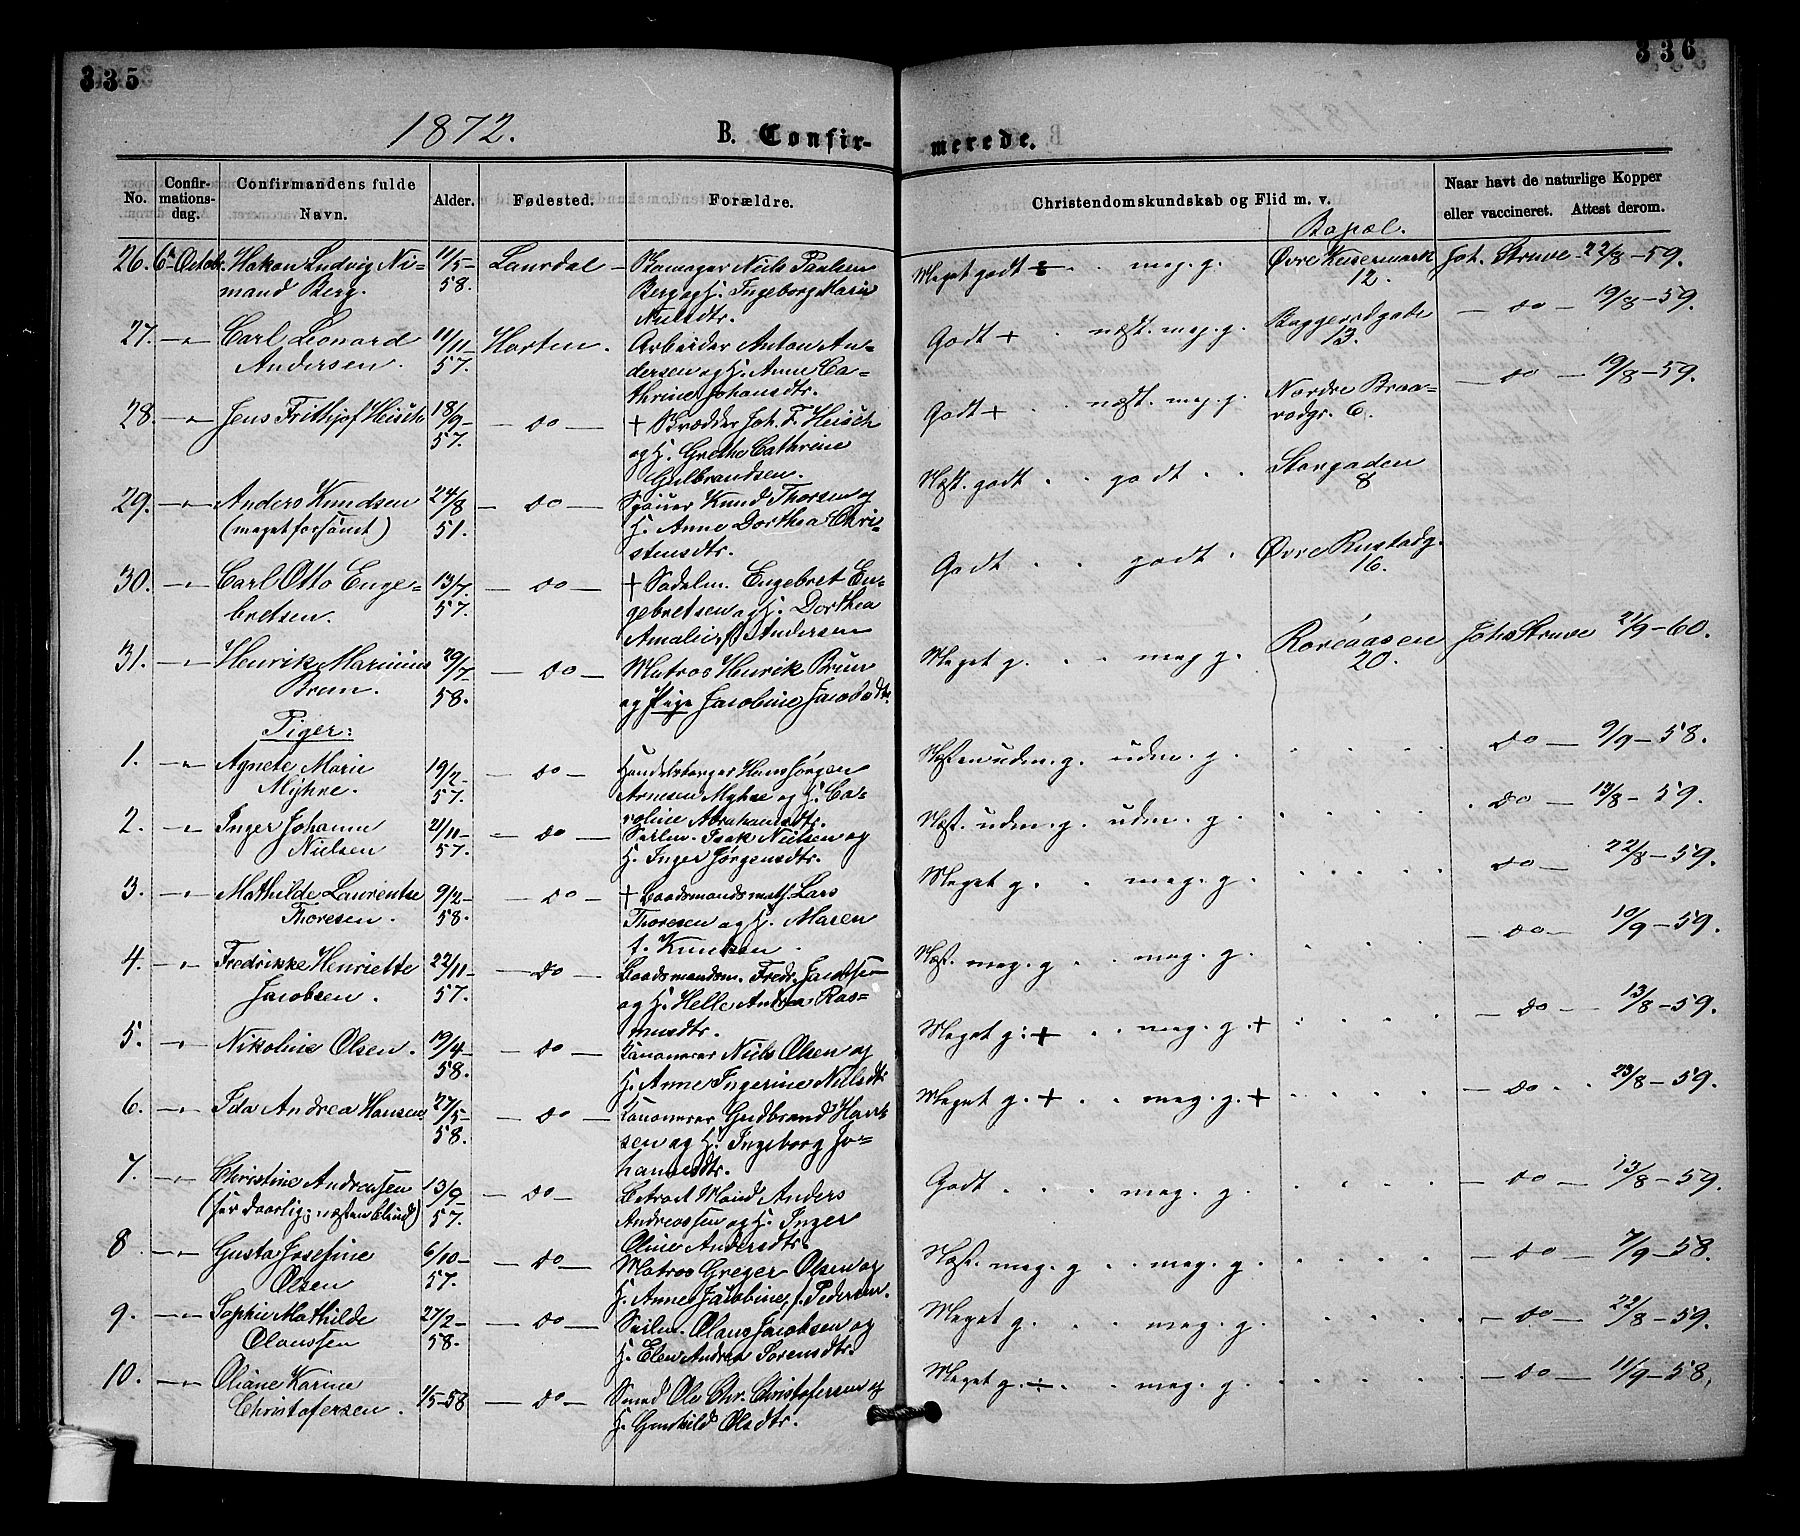 335
336
1872.
B. Confir-
merede.
No.
Confir-
mations-
dag.
Confirmandens fulde
Navn.
Alder.
Fødested.
Forældre.
Christendomskundskab og Flid m. v.
Bopæl.
Naar havt de naturlige Kopper
eller vaccineret. Attest derom.
26. 6te Octobr. Hakon Ludvig Ni- 11/5- Laurdal Skomager Niels Paulsen
mand Berg. 58. Berg og H. Ingeborg Marie
Nielsdtr.
Meget godt meg. g. Øvre Keisermark Joh. Struve 22/8-59.
12.
27. -"- Carl Leonard 11/11- Horten. Arbeider Anton An-
Andersen. 57. dersen og H. Anne Ca-
thrine Johansdtr.
Godt + næst. meg. g. Baggerødgade - do - 19/8-59.
13.
28. -"- Jens Frithjof Heisch 18/9- - do - + Snedker Joh. F. Heisch
57. og H. Grethe Cathrine
Gulbrandsen.
Godt + næst. meg. g. Nordre Braa- - do - 19/8-59.
rudgr. 6.
29. -"- Anders Knudsen 24/8 - do - Knud Thorsen og
(meget forsømt) 51. H. Anne Dorthea Chri-
stensdtr.
Næst. godt godt Storgaden
8
30. -"- Carl Otto Enge- 13/7- - do - + Sadelm. Engebret En-
bretsen. 57. gebretsen og H. Dorthea
Amalie f. Andersen
Godt godt Øvre Rustadg.
16.
31. -"- Henrik Marinius 29/7 - do - Matros Henrik Brun
Brun. 58. og Pige Jacobine Jacobsdtr.
Meget g. meg g. Roreaasen Johs Struve 21/9-60.
20.
Piger:
1. -"- Agnete Marie 19/2- - do - Handelsborger Hans Jørgen
Myhre. 57. Arnesen Myhre og H. Ca-
roline Abrahamsdtr.
Næsten udm. g. udm. g. do - 9/9-58.
2. -"- Inger Johanne 21/11- - do - Seilm. Isak Nielsen og
Nielsen 57. H. Inger Jørgensdtr.
Næst. udm. g. udm. g. do - 13/8-59.
3. -"- Mathilde Laurentse 9/2- - do - + Baadsmandsmath. Lars
Thoresen. 58. Thoresen og H. Maren
f. Knudsen
Meget g. meg. g. do - 22/8-59.
4. -"- Fredrikke Henriette 22/11- - do - Baadsmandsm. Fredr. Jacobsen
Jacobsen. 57. og H. Helle Andrea Ras-
musdtr.
Næst. meg. g meg. g. - do - 19/9-59.
5. -"- Nikoline Olsen. 19/4- - do - Kanonerer Niels Olsen og
58. H. Anne Ingerine Nielsdtr.
Meget g. + meg. g. + - do - 13/8-59.
6. -"- Ida Andrea Hansen 27/5 - do - Kanonerer Gudbrand Han-
58. sen og H. Ingeborg Jo-
hannesdtr.
Meget g. + meg. g. + - do 23/8-59.
7. -"- Christine Andreassen 13/9 - do - Anders
(ser daarlig; næsten blind) 57. Andreassen og H. Inger
Oline Andersdtr.
Godt meg. g. - do - 13/8-59.
8. -"- Gusta Josefine 6/10- - do - Matros Greger Olsen og
Olsen 57. H. Anne Jacobine f. Pedersen.
Næst. meg. g meg. g. - do - 7/9-58.
9. -"- Sophie Mathilde 27/2- - do - Seilm. Olaus Jacobsen og
Olaussen 58. H. Elen Andrea Sørensdtr.
Meget g. meg. g. - do - 22/8-59.
10. -"- Oliane Karine
Christofersen. 1/5-58 - do - Smed Ole Chr. Christofersen og
H. Gunhild Olsdtr.
Meget g. meg. g. - do - 11/9-58,